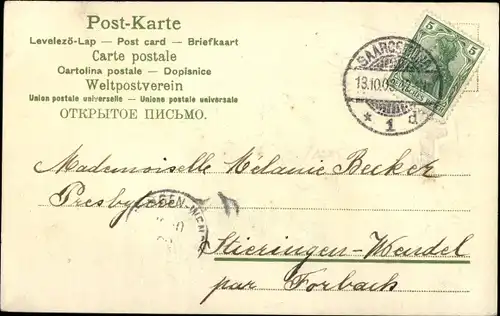 Post-Karte
Levelező-Lap — Post card — Briefkaart
Carte postale
Cartolina postale — Dopisnice
Weltpostverein
Union postale universelle — Unione postale universale
ОТКРЫТОЕ ПИСЬМО.
5 5
* 1 d
Mademoiselle Mélanie Becker
Presbytère
Stieringen-Wendel
par Forbach